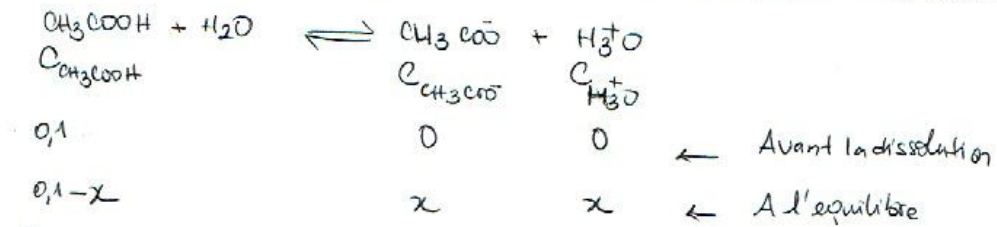 CH3COOH + H2O ⇌ CH3COO⁻ + H3⁺O
C_CH3COOH C_CH3COO⁻ C_H3⁺O
0,1 0 0 ← Avant la dissolution
0,1-x x x ← A l'equilibre